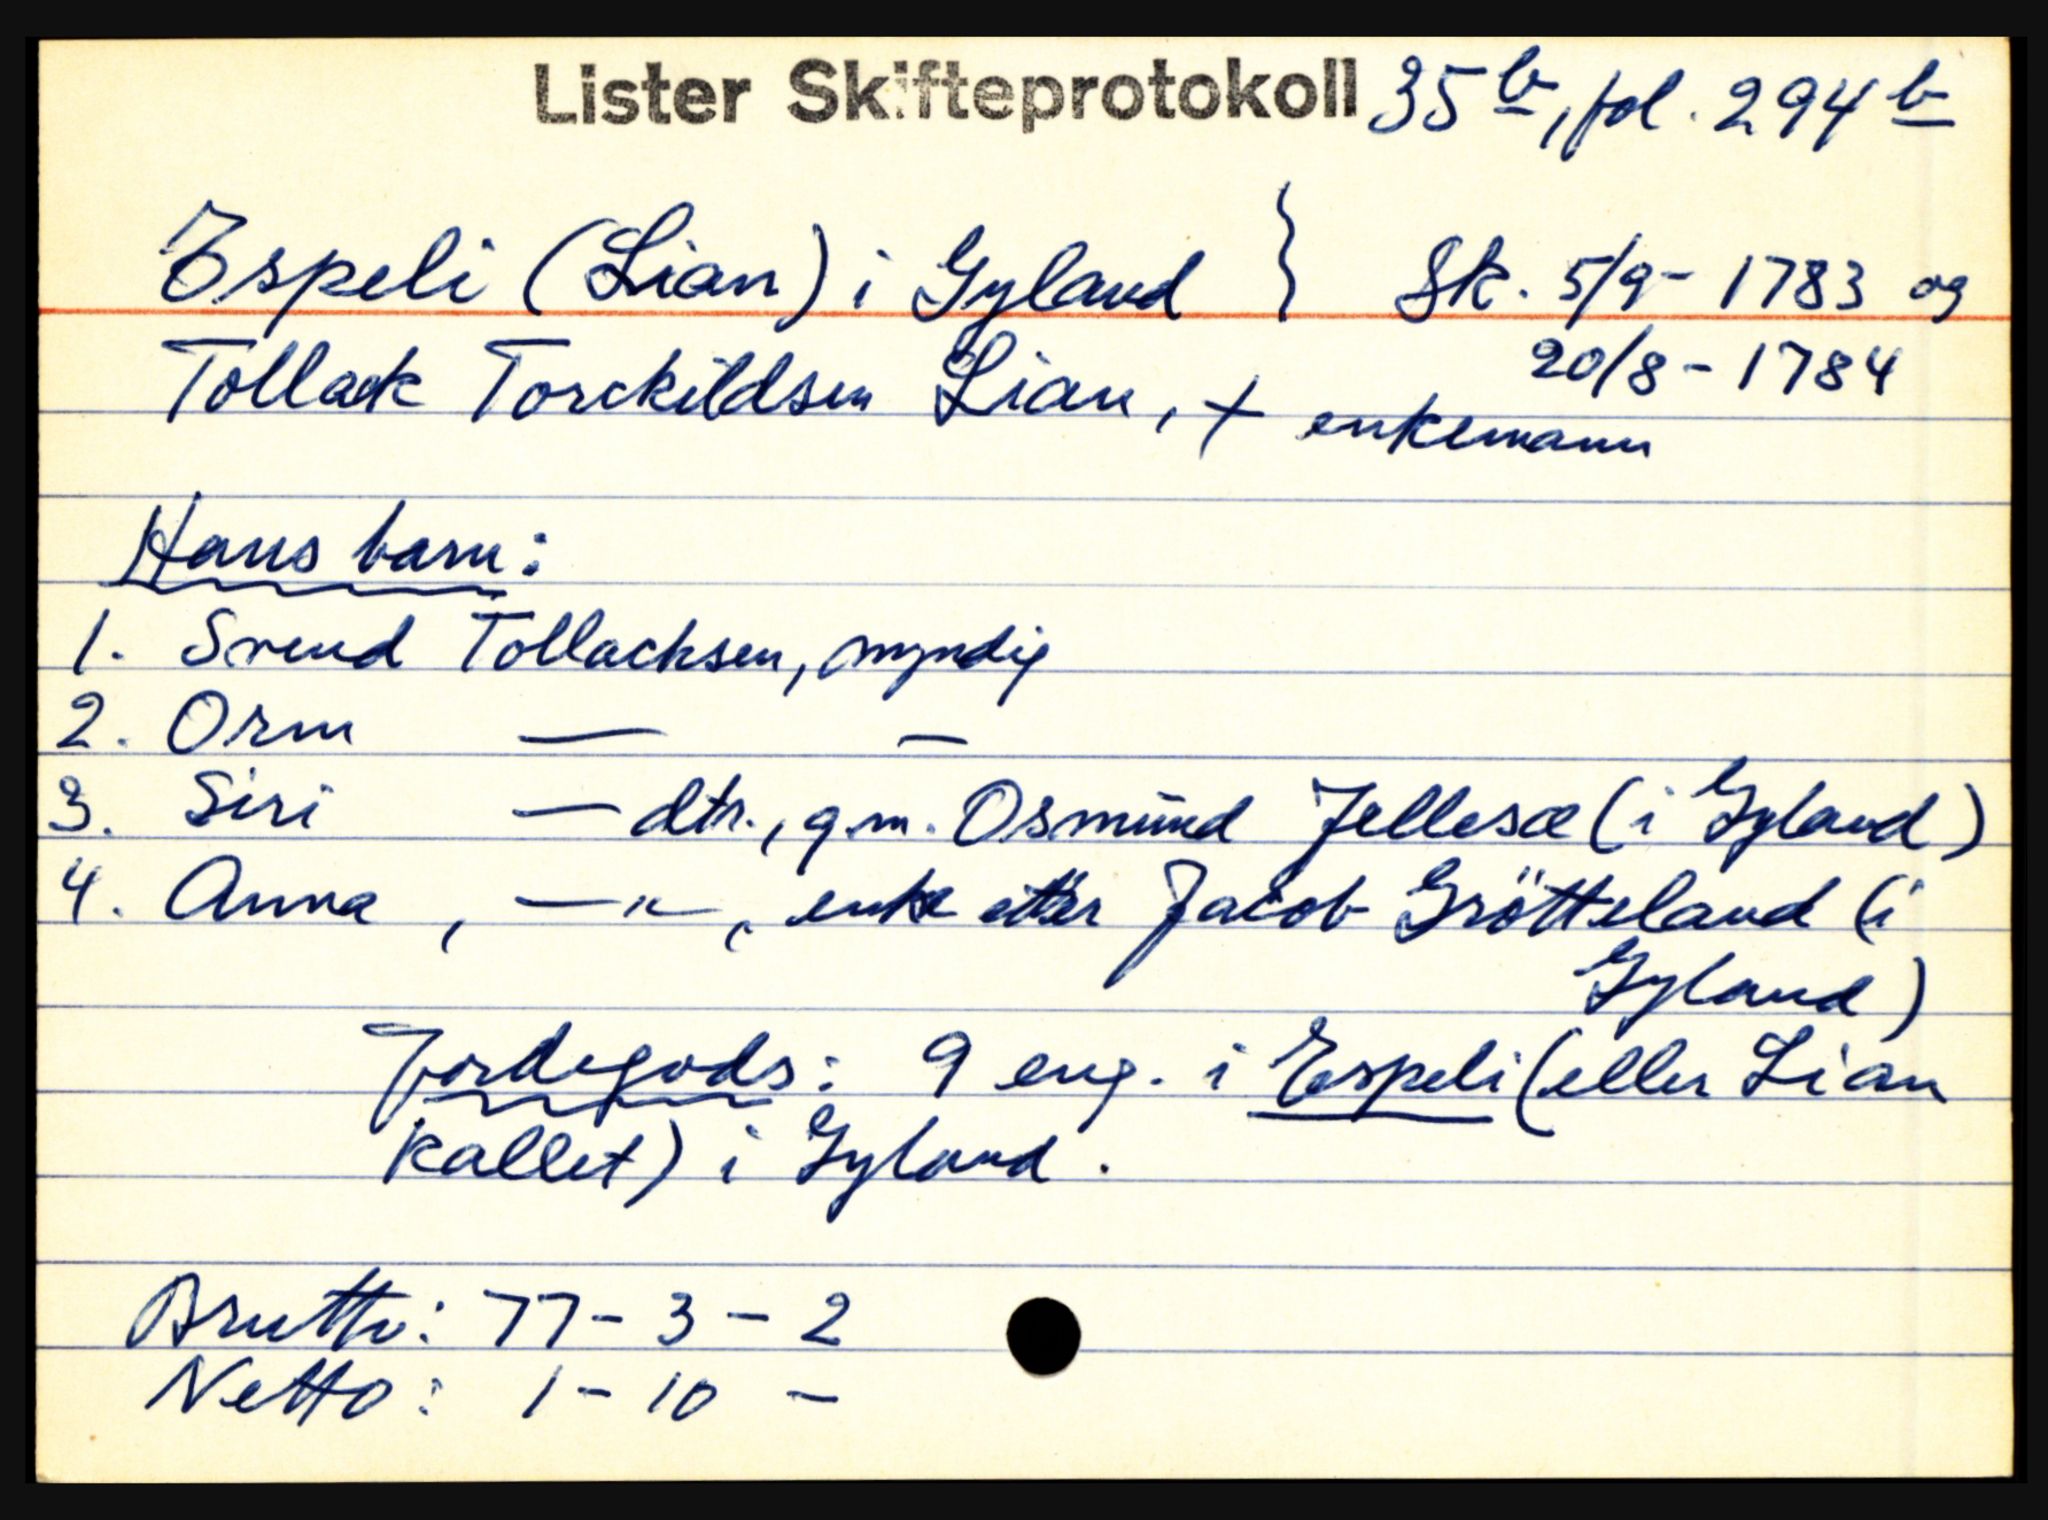 Lister Skifteprotokoll 35 b, fol. 294 b
Espeli (Lian) i Gyland } Sk. 5/9 - 1783 og
20/8 - 1784
Tollack Torckildsen Lian, + enkemann
Hans barn:
1. Svend Tollacksen, myndig
2. Orm — —
3. Siri — dtr., g.m. Osmund Jellesæ (i Gyland)
4. Anna, —"—, enke etter Jacob Grötteland (i
Gyland)
Jordegods: 9 eng. i Espeli (eller Lian
kallet) i Gyland.
Brutto: 77 - 3 - 2
Netto: 1 - 10 -